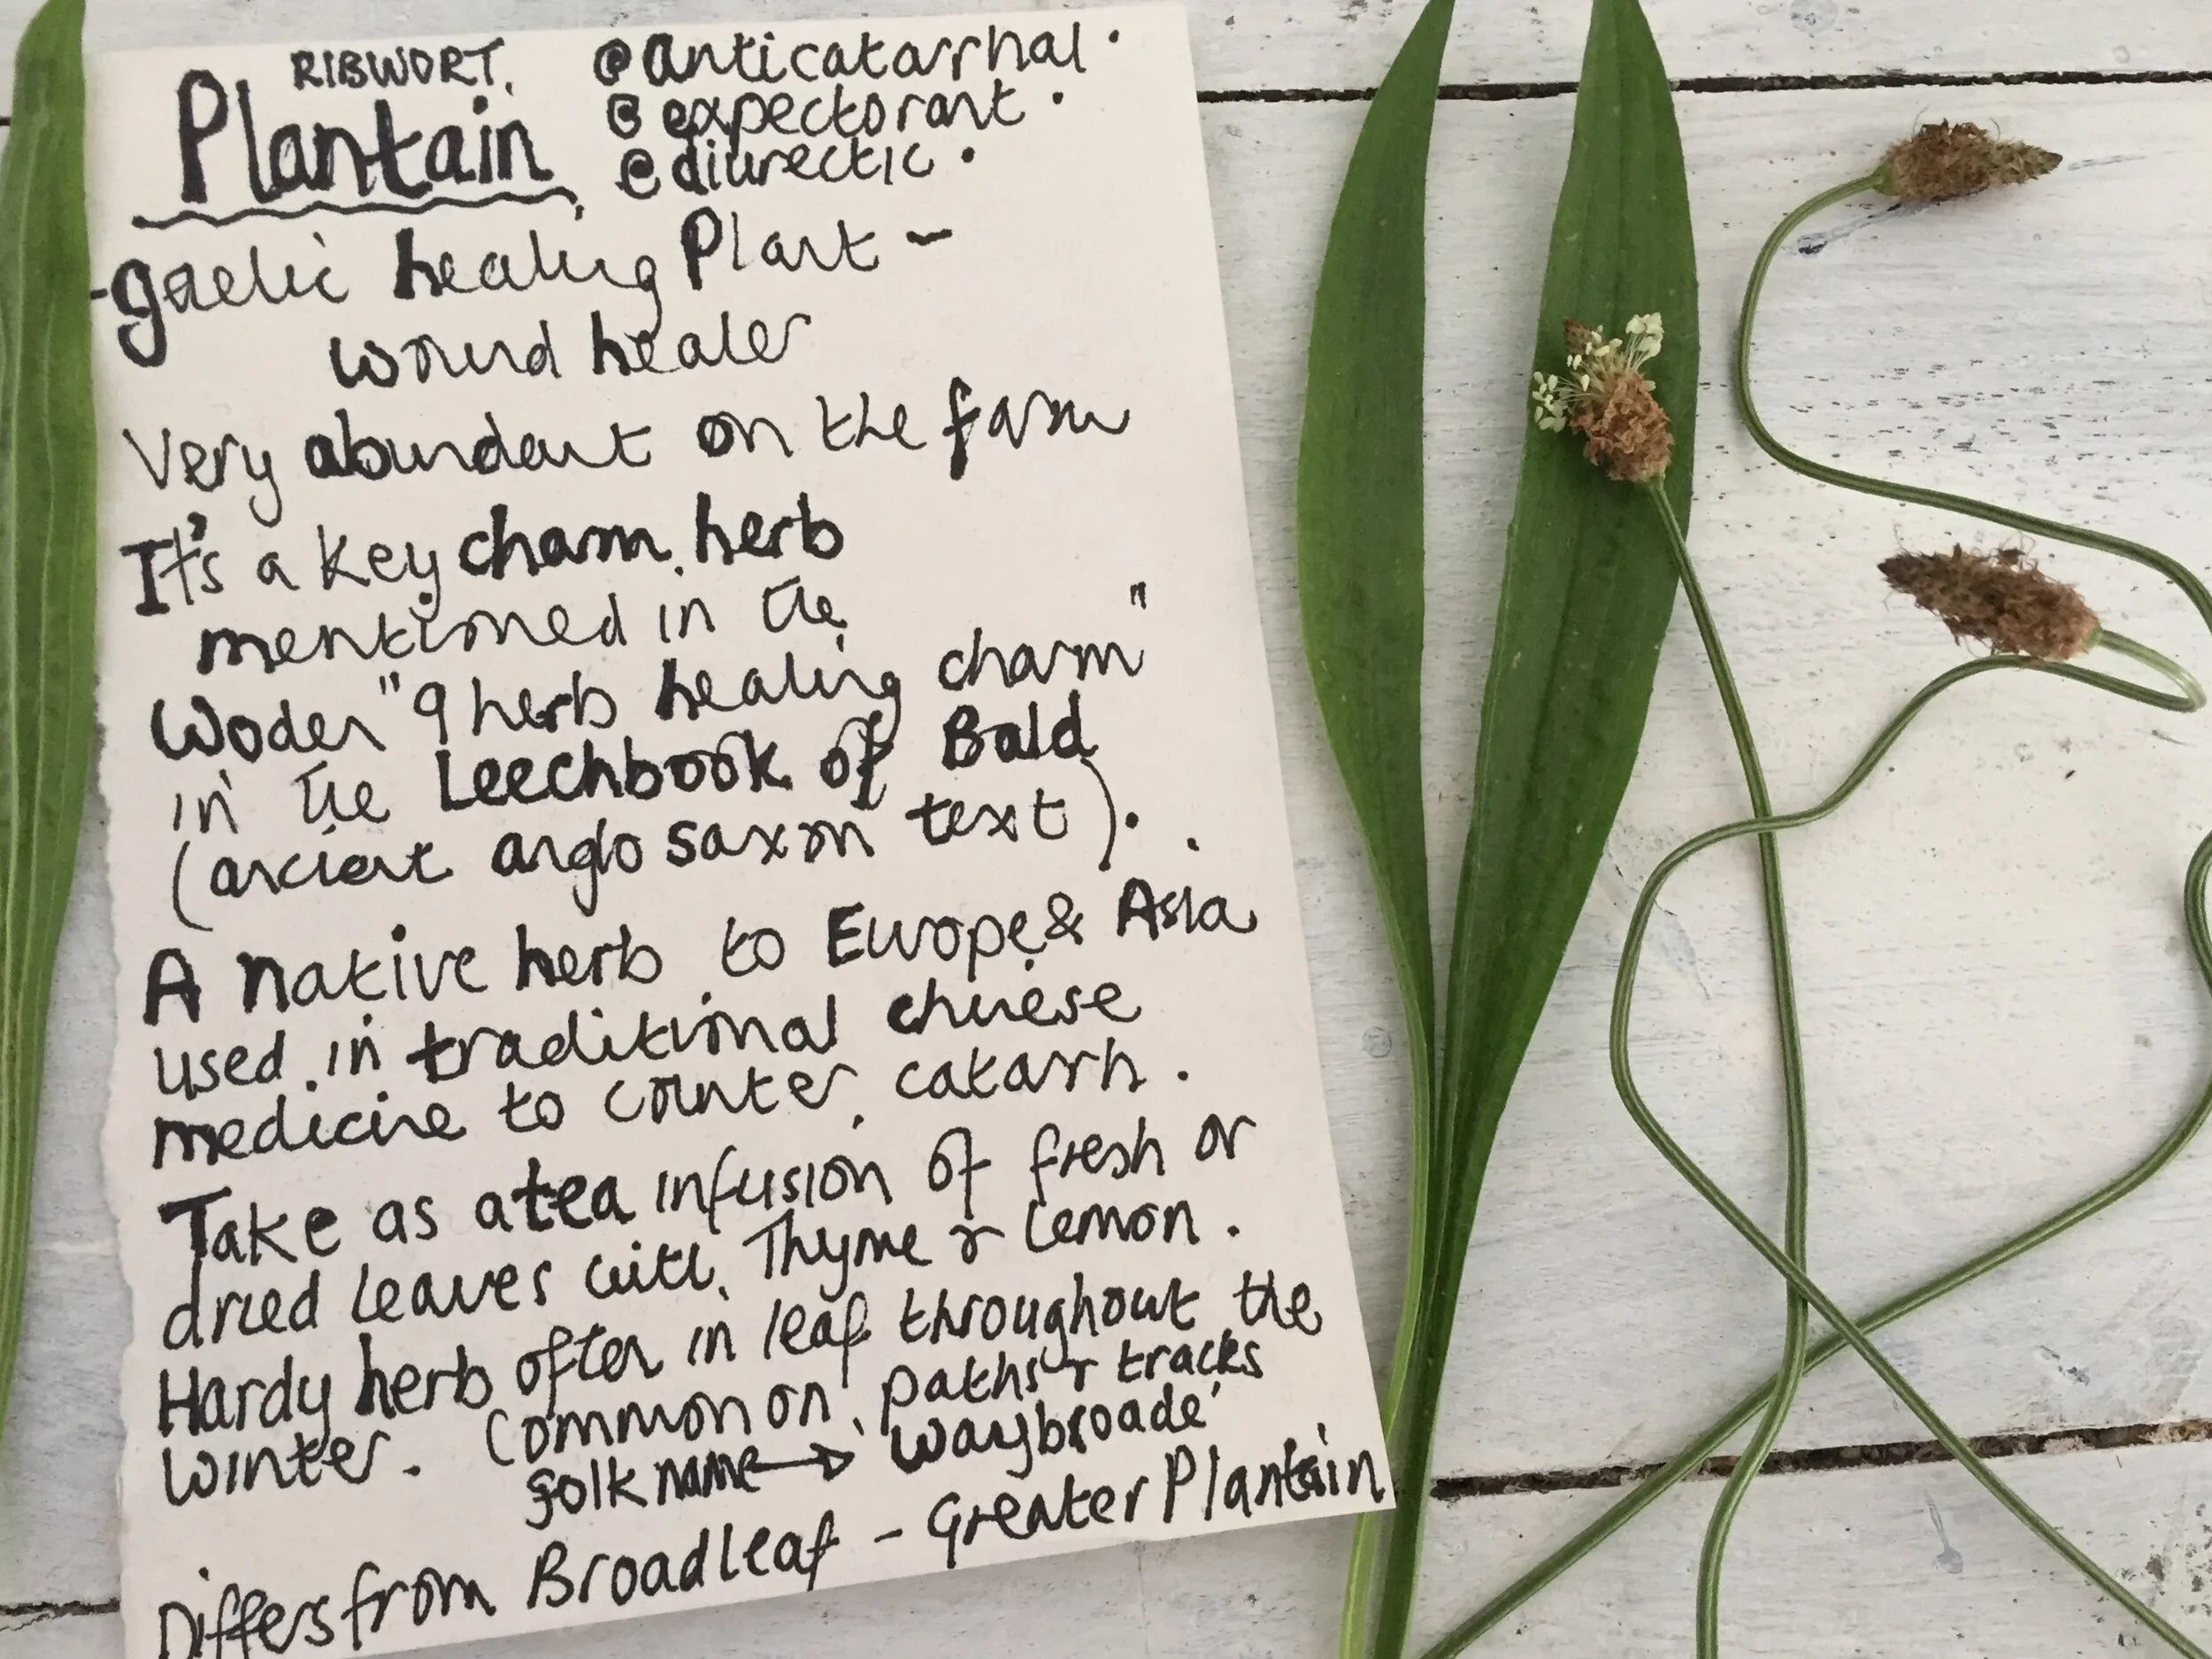 RIBWORT.
Plantain
@anticatarrhal.
@expectorant.
@diurectic.
-gaelic healing Plant -
wound healer
Very abundant on the farm
It's a key charm herb
mentioned in the
Woden "9 herb healing charm"
in the Leechbook of Bald
(ancient anglo saxon text).
A native herb to Europe & Asia
used in traditional chinese
medicine to counter catarrh.
Take as a tea infusion of fresh or
dried leaves with Thyme & lemon.
Hardy herb often in leaf throughout the
winter. Common on paths & tracks
folk name → 'waybroade'
Differs from Broadleaf - Greater Plantain